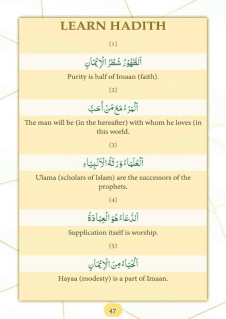 LEARN HADITH
(1)
اَلطُّهُوْرُ شَطْرُ الْاِيْمَانِ
Purity is half of Imaan (faith).
(2)
اَلْمَرْءُ مَعَ مَنْ اَحَبَّ
The man will be (in the hereafter) with whom he loves (in
this world.
(3)
اَلْعُلَمَاءُ وَرَثَةُ الْاَنْبِيَاءِ
Ulama (scholars of Islam) are the successors of the
prophets.
(4)
اَلدُّعَاءُ هُوَ الْعِبَادَةُ
Supplication itself is worship.
(5)
اَلْحَيَاءُ مِنَ الْاِيْمَانِ
Hayaa (modesty) is a part of Imaan.
47